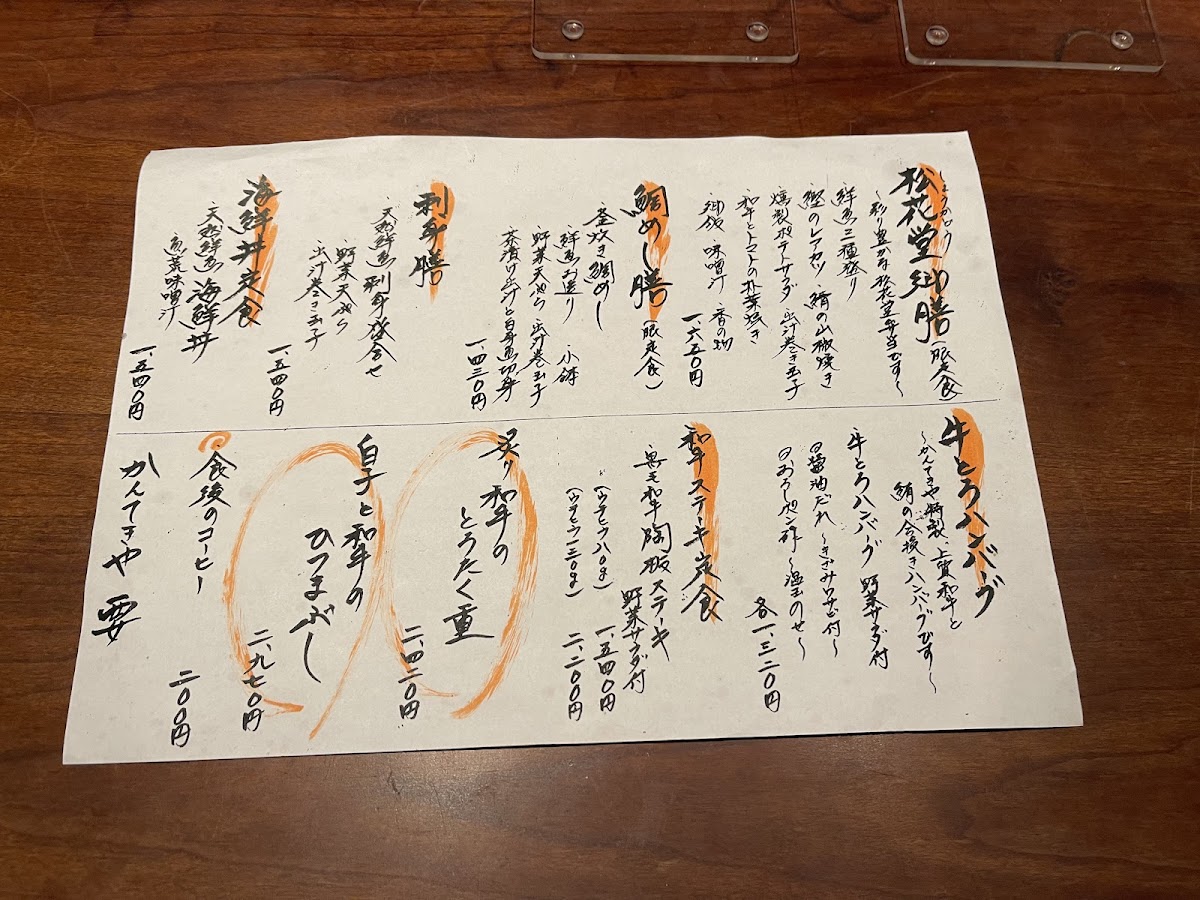 しょうかどう
松花堂御膳(限定食)
～彩り豊かな松花堂弁当です～
鮮魚三種盛り
鰹のレアカツ 鯖の山椒焼き
燻製ポテトサラダ 出汁巻き玉子
和牛とトマトの朴葉焼き
御飯 味噌汁 香の物
一、六五〇円
鯛めし膳(限定食)
釜炊き鯛めし
鮮魚お造り 小鉢
野菜天ぷら 出汁巻玉子
茶漬け出汁と白身魚切身
一、四三〇円
刺身膳
天然鮮魚刺身盛合せ
野菜天ぷら
出汁巻き玉子
一、五四〇円
海鮮丼定食
天然鮮魚海鮮丼
魚荒味噌汁
一、五四〇円
牛とろハンバーグ
～かんてきや特製、上質和牛と
鮪の合挽きハンバーグです～
牛とろハンバーグ 野菜サラダ付
◎醤油だれ～きざみワサビ付～
◎おろしポン酢～温玉のせ～
各一、三二〇円
和牛ステーキ定食
黒毛和牛陶板ステーキ
野菜サラダ付
(ウチヒラ八〇g) 一、五四〇円
(ウチヒラ一三〇g) 二、二〇〇円
炙り和牛の
とろたく重
二、四二〇円
白子と和牛の
ひつまぶし
二、九七〇円
食後のコーヒー
二〇〇円
かんてきや 要